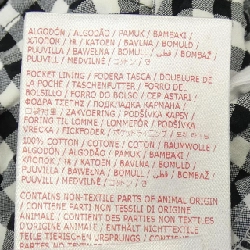 ALGODÓN / ALGODÃO / PAMUK / BAMBAKI
ХЛОПОК / / KATOEN / BAVLNA / BOMULD /
PUUVILLA / BAVLNA / BOMULD / قطن / BOMBAŻ
PUUVILL / MEDVILNĖ /
POCKET LINING / FODERA TASCA / DOUBLURE DE
LA POCHE / TASCHENFUTTER / FORRO DE
BOLSILLO / FORRO DO BOLSO / CEP ASTARI /
ФОДРА / ПОДКЛАДКА КАРМАНА
/ ZAKVOERING / PODŠÍVKA KAPSY
FORING TIL LOMME / LOMMEFÓR / PODŠÍVKA
VRECKA / FICKFODER /
100% COTTON / COTONE / COTON / BAUMWOLLE /
ALGODÓN / ALGODÃO / PAMUK / BAMBAKI /
ХЛОПОК / / KATOEN / BAVLNA / BOMULD /
PUUVILLA / BAVLNA / BOMULD / قطن / BOMBAŻ
PUUVILL / MEDVILNĖ /
CONTAINS NON-TEXTILE PARTS OF ANIMAL ORIGIN
/ CONTIENE PARTI NON TESSILI DI ORIGINE
ANIMALE / CONTIENT DES PARTIES NON TEXTILES
D'ORIGINE ANIMALE / ENTHÄLT NICHTTEXTILE
TEILE TIERISCHEN URSPRUNGS / CONTIENE
PARTES NO TEXTILES